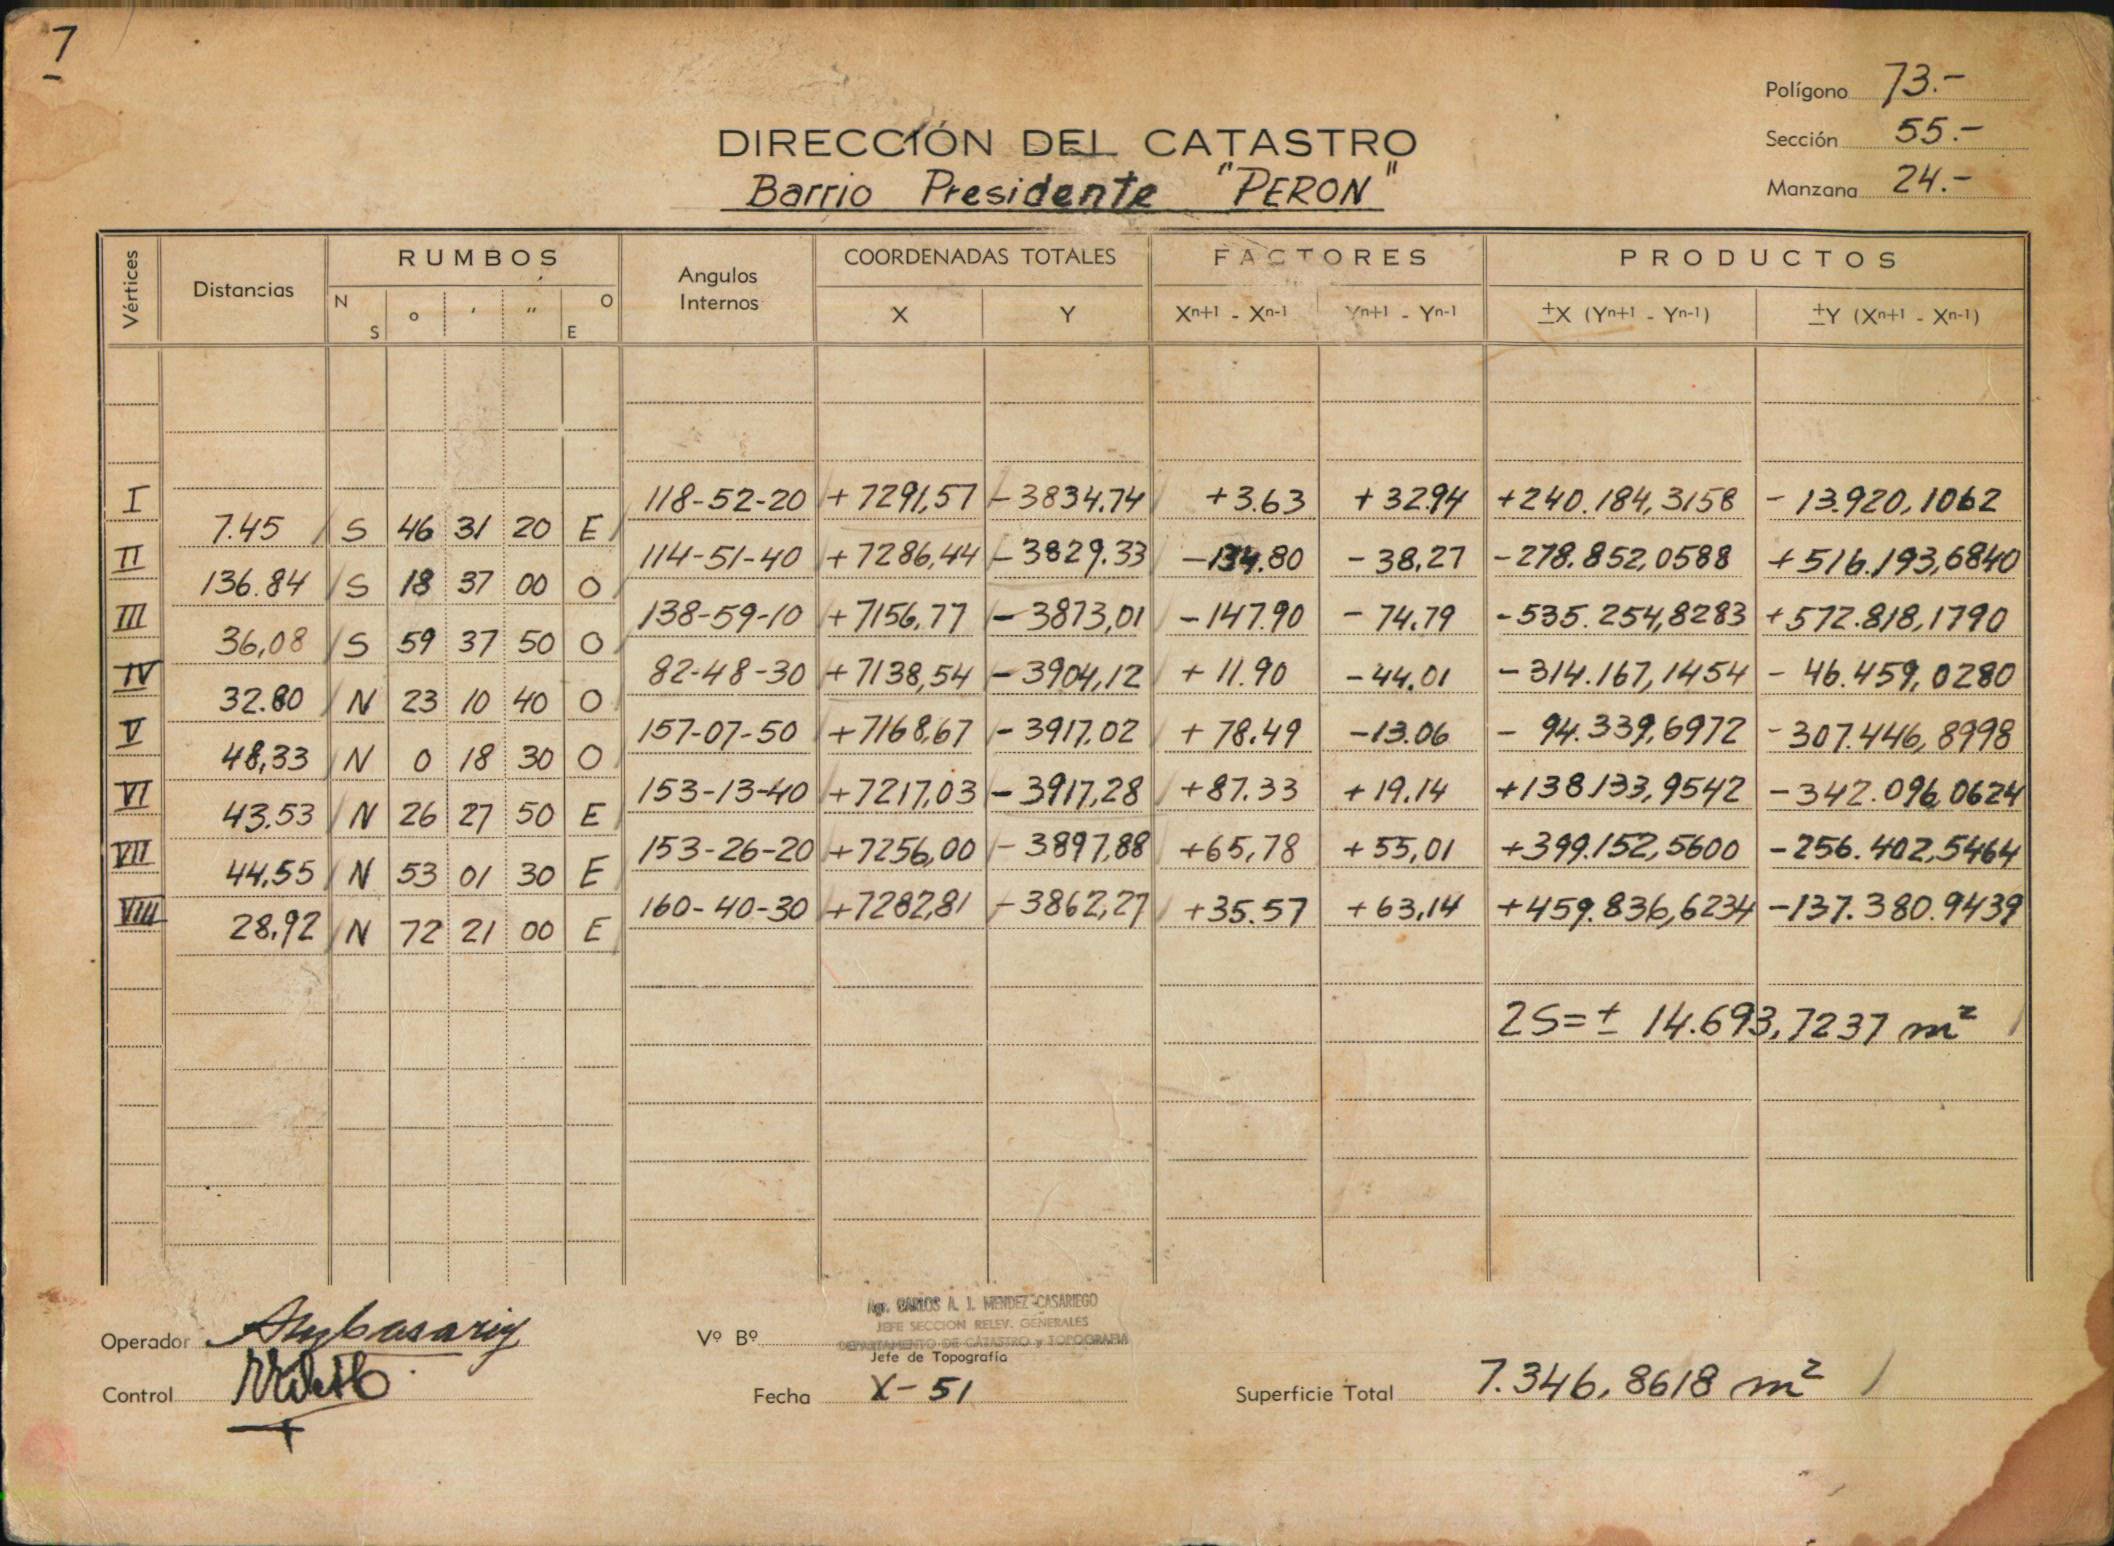 7
Polígono 73.-
Sección 55.-
Manzana 24.-
DIRECCIÓN DEL CATASTRO
Barrio Presidente "PERON"
Vértices Distancias RUMBOS Angulos Internos COORDENADAS TOTALES FACTORES PRODUCTOS
N S o ' " O E X Y Xn+1 - Xn-1 Yn+1 - Yn-1 ±X (Yn+1 - Yn-1) ±Y (Xn+1 - Xn-1)
I 118-52-20 +7291,57 -3834.74 +3.63 +32.94 +240.184,3158 -13.920,1062
7.45 S 46 31 20 E
II 114-51-40 +7286,44 -3829.33 -134.80 -38,27 -278.852,0588 +516.193,6840
136.84 S 18 37 00 O
III 138-59-10 +7156,77 -3873,01 -147.90 -74.79 -535.254,8283 +572.818,1790
36,08 S 59 37 50 O
IV 82-48-30 +7138,54 -3904,12 +11.90 -44.01 -314.167,1454 -46.459,0280
32.80 N 23 10 40 O
V 157-07-50 +7168,67 -3917,02 +78.49 -13.06 -94.339,6972 -307.446,8998
48,33 N 0 18 30 O
VI 153-13-40 +7217,03 -3917,28 +87.33 +19.14 +138.133,9542 -342.096,0624
43.53 N 26 27 50 E
VII 153-26-20 +7256,00 -3897,88 +65,78 +55,01 +399.152,5600 -256.402,5464
44,55 N 53 01 30 E
VIII 160-40-30 +7282,81 -3862,27 +35.57 +63,14 +459.836,6234 -137.380.9439
28,92 N 72 21 00 E
2S=± 14.693,7237 m²
Agr. CARLOS A. J. MENDEZ CASARIEGO
JEFE SECCION RELEV. GENERALES
DEPARTAMENTO DE CATASTRO y TOPOGRAFIA
Operador Vº Bº
Jefe de Topografía
Control Fecha X-51 Superficie Total 7.346,8618 m²